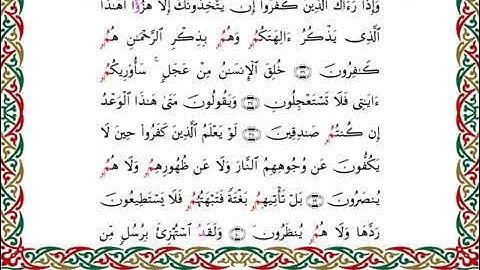 وَإِذَا رَءَاكَ ٱلَّذِينَ كَفَرُوٓا۟ إِن يَتَّخِذُونَكَ إِلَّا هُزُؤًا أَهَـٰذَا
ٱلَّذِى يَذْكُرُ ءَالِهَتَكُمُۥ وَهُمُۥ بِذِكْرِ ٱلرَّحْمَـٰنِ هُمُۥ
كَـٰفِرُونَ ۝ خُلِقَ ٱلْإِنسَـٰنُ مِنْ عَجَلٍ ۚ سَأُو۟رِيكُمُۥ
ءَايَـٰتِى فَلَا تَسْتَعْجِلُونِ ۝ وَيَقُولُونَ مَتَىٰ هَـٰذَا ٱلْوَعْدُ
إِن كُنتُمُۥ صَـٰدِقِينَ ۝ لَوْ يَعْلَمُ ٱلَّذِينَ كَفَرُوا۟ حِينَ لَا
يَكُفُّونَ عَن وُجُوهِهِمُۥ ٱلنَّارَ وَلَا عَن ظُهُورِهِمُۥ وَلَا هُمُۥ
يُنصَرُونَ ۝ بَلْ تَأْتِيهِمُۥ بَغْتَةً فَتَبْهَتُهُمُۥ فَلَا يَسْتَطِيعُونَ
رَدَّهَا وَلَا هُمُۥ يُنظَرُونَ ۝ وَلَقَدُ ٱسْتُهْزِئَ بِرُسُلٍ مِّن